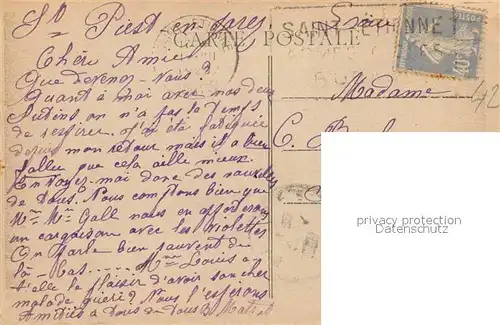 St Priest-en-Jarez
CARTE POSTALE
SAINT-ETIENNE
Chère Amie
Que devenez-vous?
Quant à moi avec mes deux
lutins, on n'a pas le temps
de respirer. J'ai été fatiguée
depuis mon retour mais il a bien
fallu que cela aille mieux.
Envoyez-moi donc des nouvelles
de tous. Nous comptons bien que
Mr Mme Gall nous en apporterons
un cargaison avec les violettes
On parle bien souvent de
là-bas...... Mme Louis a
t'elle le plaisir d'avoir son cher
malade guéri? Nous l'espérons
Amitiés à tous de tous
Madame
40
42
privacy protection
www.DELCAMPE.com